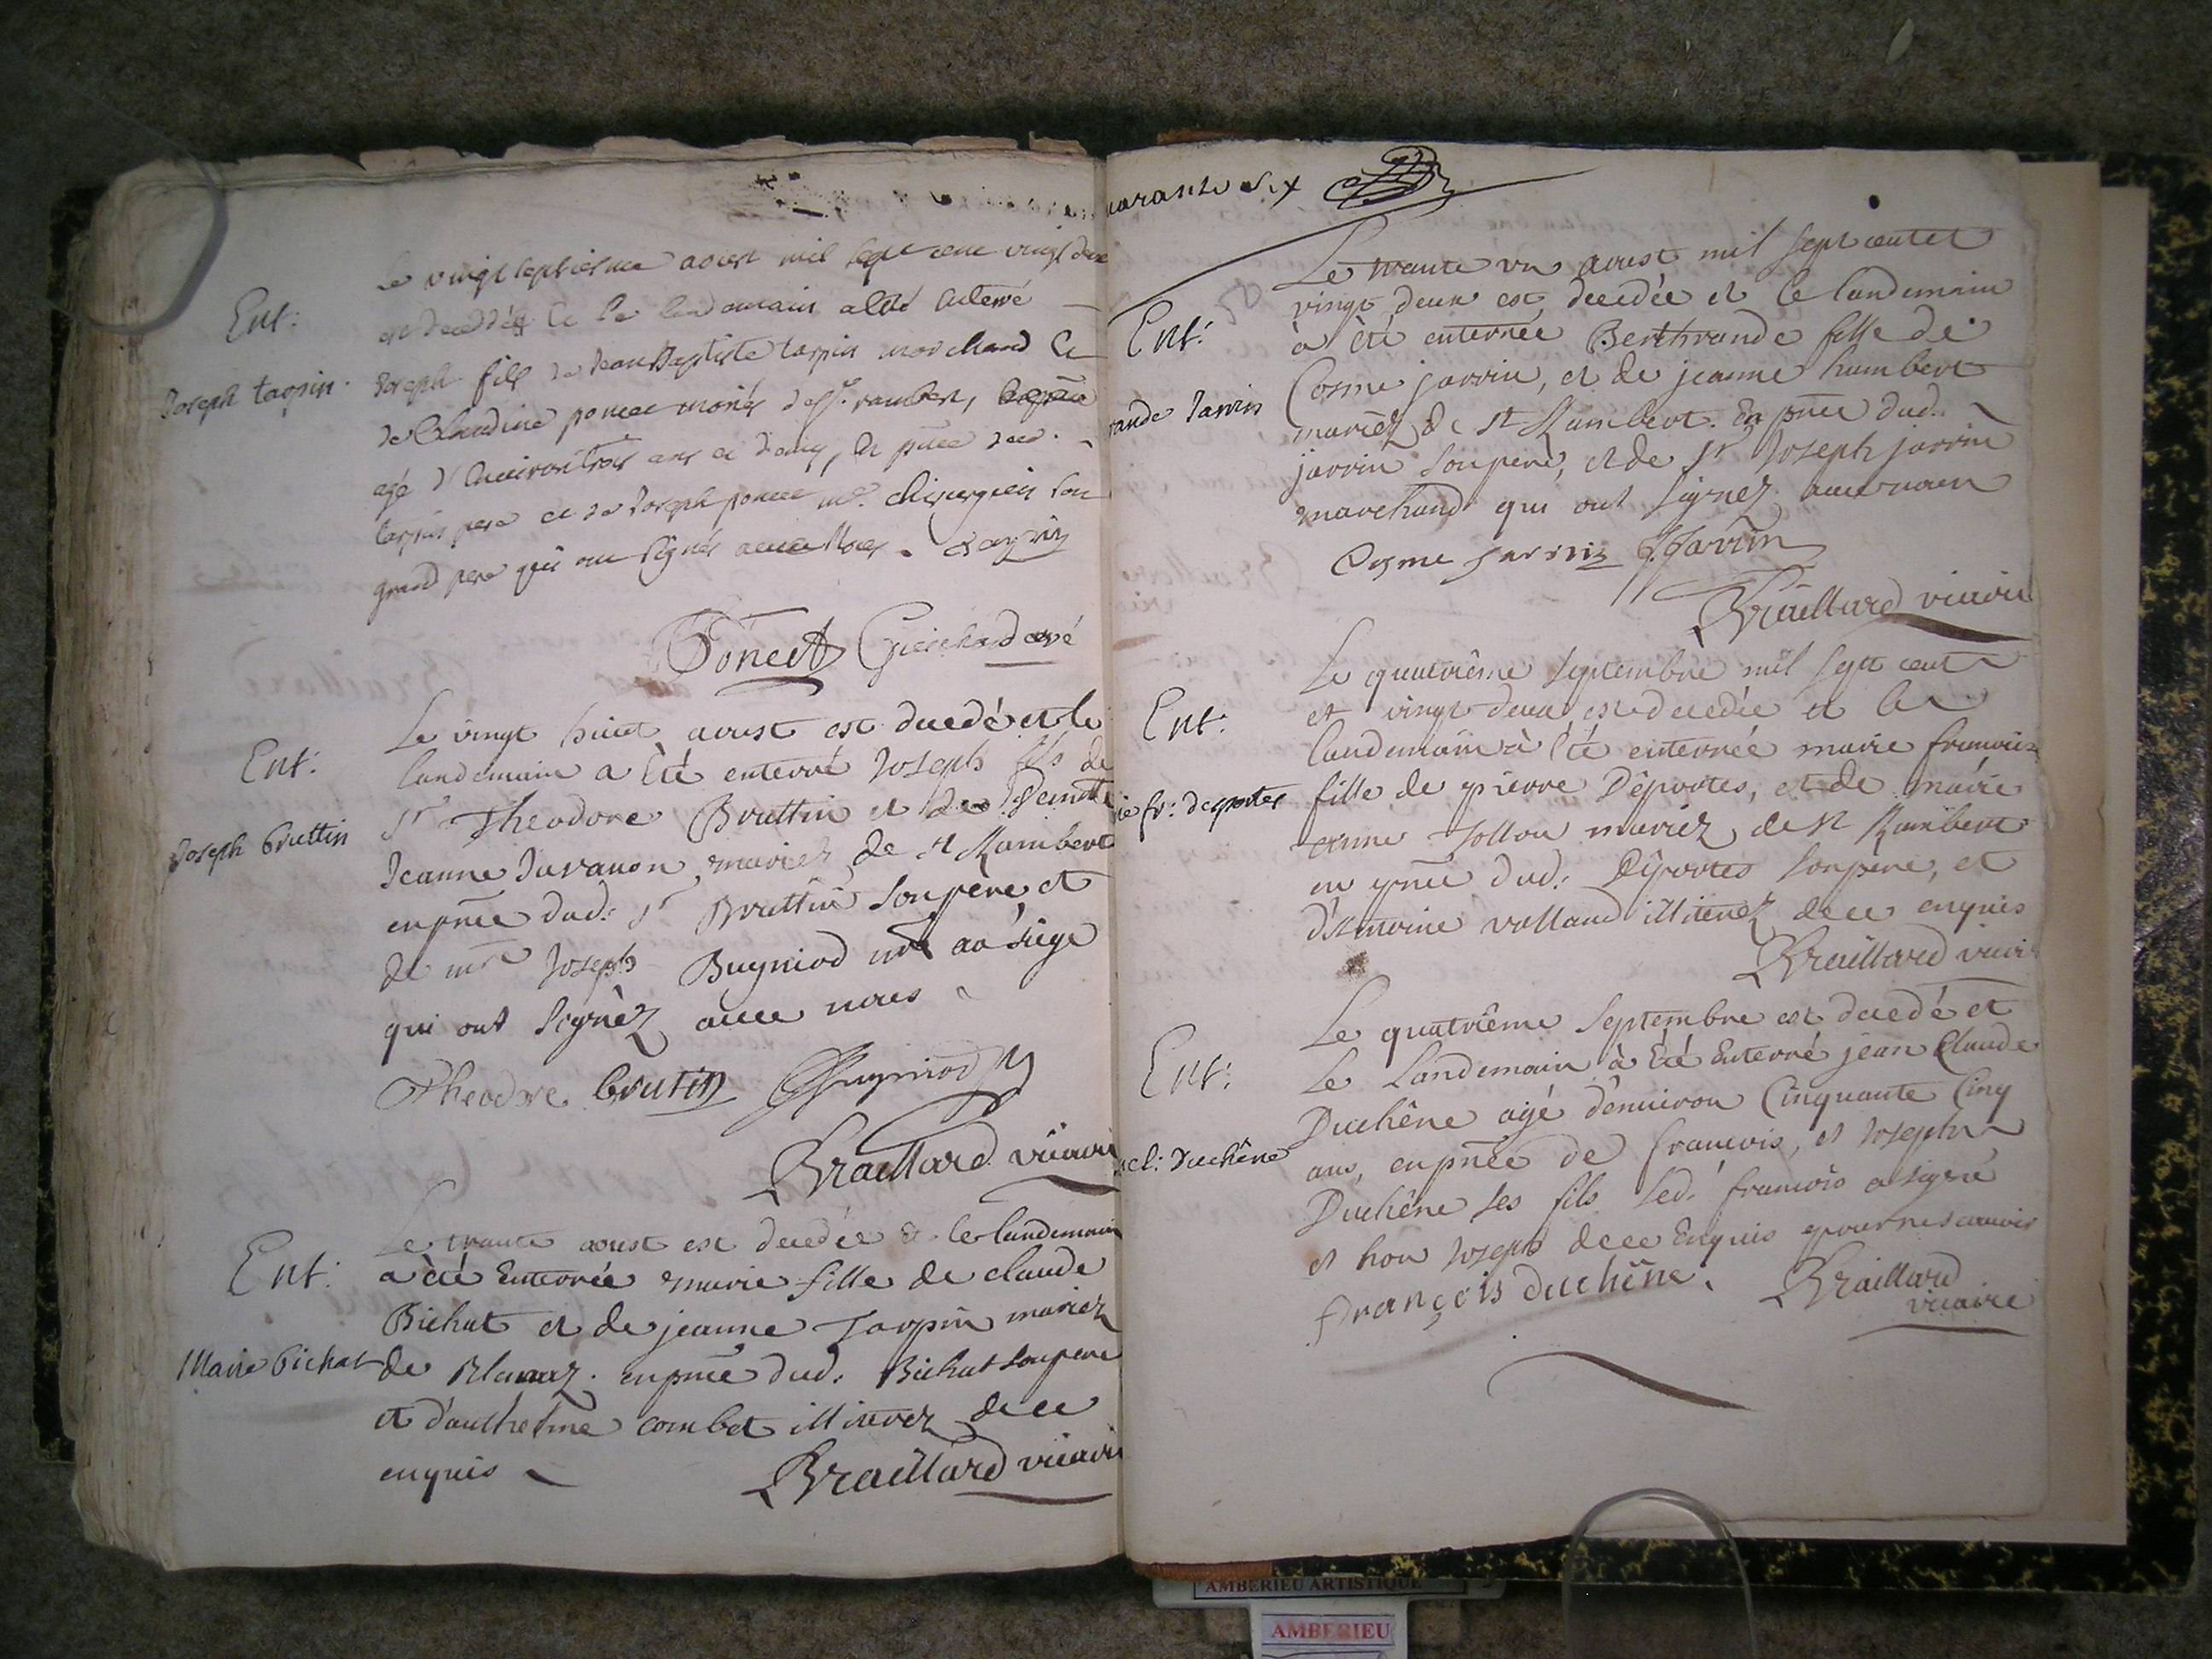 Ent:
Joseph tarpin.
Le vingt septiesme aoust mil sept cent vingt deux
est decedé et le lendemain a esté enterré
Joseph fils de Jean Baptiste tarpin marchand et
de Claudine poncet mariés de st rambert,
agé d'environ trois ans et demy, en pnce dud.
tarpin pere et de Joseph poncet me chirurgien son
grand pere qui ont signés avec Nous. Tarpin
Poncet Guichard curé
Ent:
Joseph bruttin
Le vingt huict aoust est decedé et le
landemain a été enterré Joseph fils de
Sr Theodore Bruttin et de
Jeanne Juvanon, mariez de st Rambert
en pnce dud: Sr Bruttin son père, et
de mre Joseph Bugniod au siege
qui ont signèz avec nous
Theodore brutin Bugniod
Braillard vicaire
Ent:
Marie bichat
Le trante aoust est decedée & le landemain
a èté Enterrée marie fille de claude
Bichat et de jeanne Tarpin mariez
de Blanaz. en pnce dud. Bichat son pere
et d'anthelme combet illiterez de ce
enquis
Braillard vicaire
quarante six
Ent:
rande Jarrin
Le trante un aoust mil sept cent et
vingt deux est decedée et le landemain
à èté enterrée Berthrande fille de
Cosme jarrin, et de jeanne humbert
mariéz de st Rambert. En pnce dud.
jarrin son pere, et de sr Joseph jarrin
marchand qui ont signez avec nous
Cosme jarrin J. Jarrin
Braillard vicaire
Ent:
ie fr: desportes
Le quatrième septembre mil sept cent
et vingt deux est decedée et le
landemain à été enterrée marie francoise
fille de pierre Déportes, et de marie
anne Tollon mariez de st Rambert
en pnce dud: Déportes son pere, et
d'Antoine volland illiterez de ce enquis
Braillard vicaire
Ent:
cl: Duchêne
Le quatrième septembre est decedé et
le Landemain à Eté Enterré jean Claude
Duchêne agé d'environ Cinquante Cinq
ans, en pnce de francois, et Joseph
Duchêne ses fils led. francois a signé
et non Joseph de ce Enquis pour ne scavoir
françois duchêne. Braillard
vicaire
AMBERIEU ARTISTIQUE
AMBERIEU